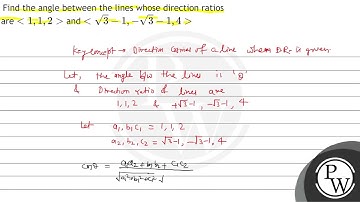 Find the angle between the lines whose direction ratios
are < 1, 1, 2 > and < √3 − 1, −√3 − 1, 4 >
Key concept → Direction cosines of a line whose DRs is given
Let, the angle b/w the lines is 'θ'
& Direction ratio of lines are
1, 1, 2 & +√3−1, −√3−1, 4
Let a₁, b₁, c₁ = 1, 1, 2
a₂, b₂, c₂ = √3−1, −√3−1, 4
cosθ = a₁a₂ + b₁b₂ + c₁c₂
√a₁²+b₁²+c₁² √
PW